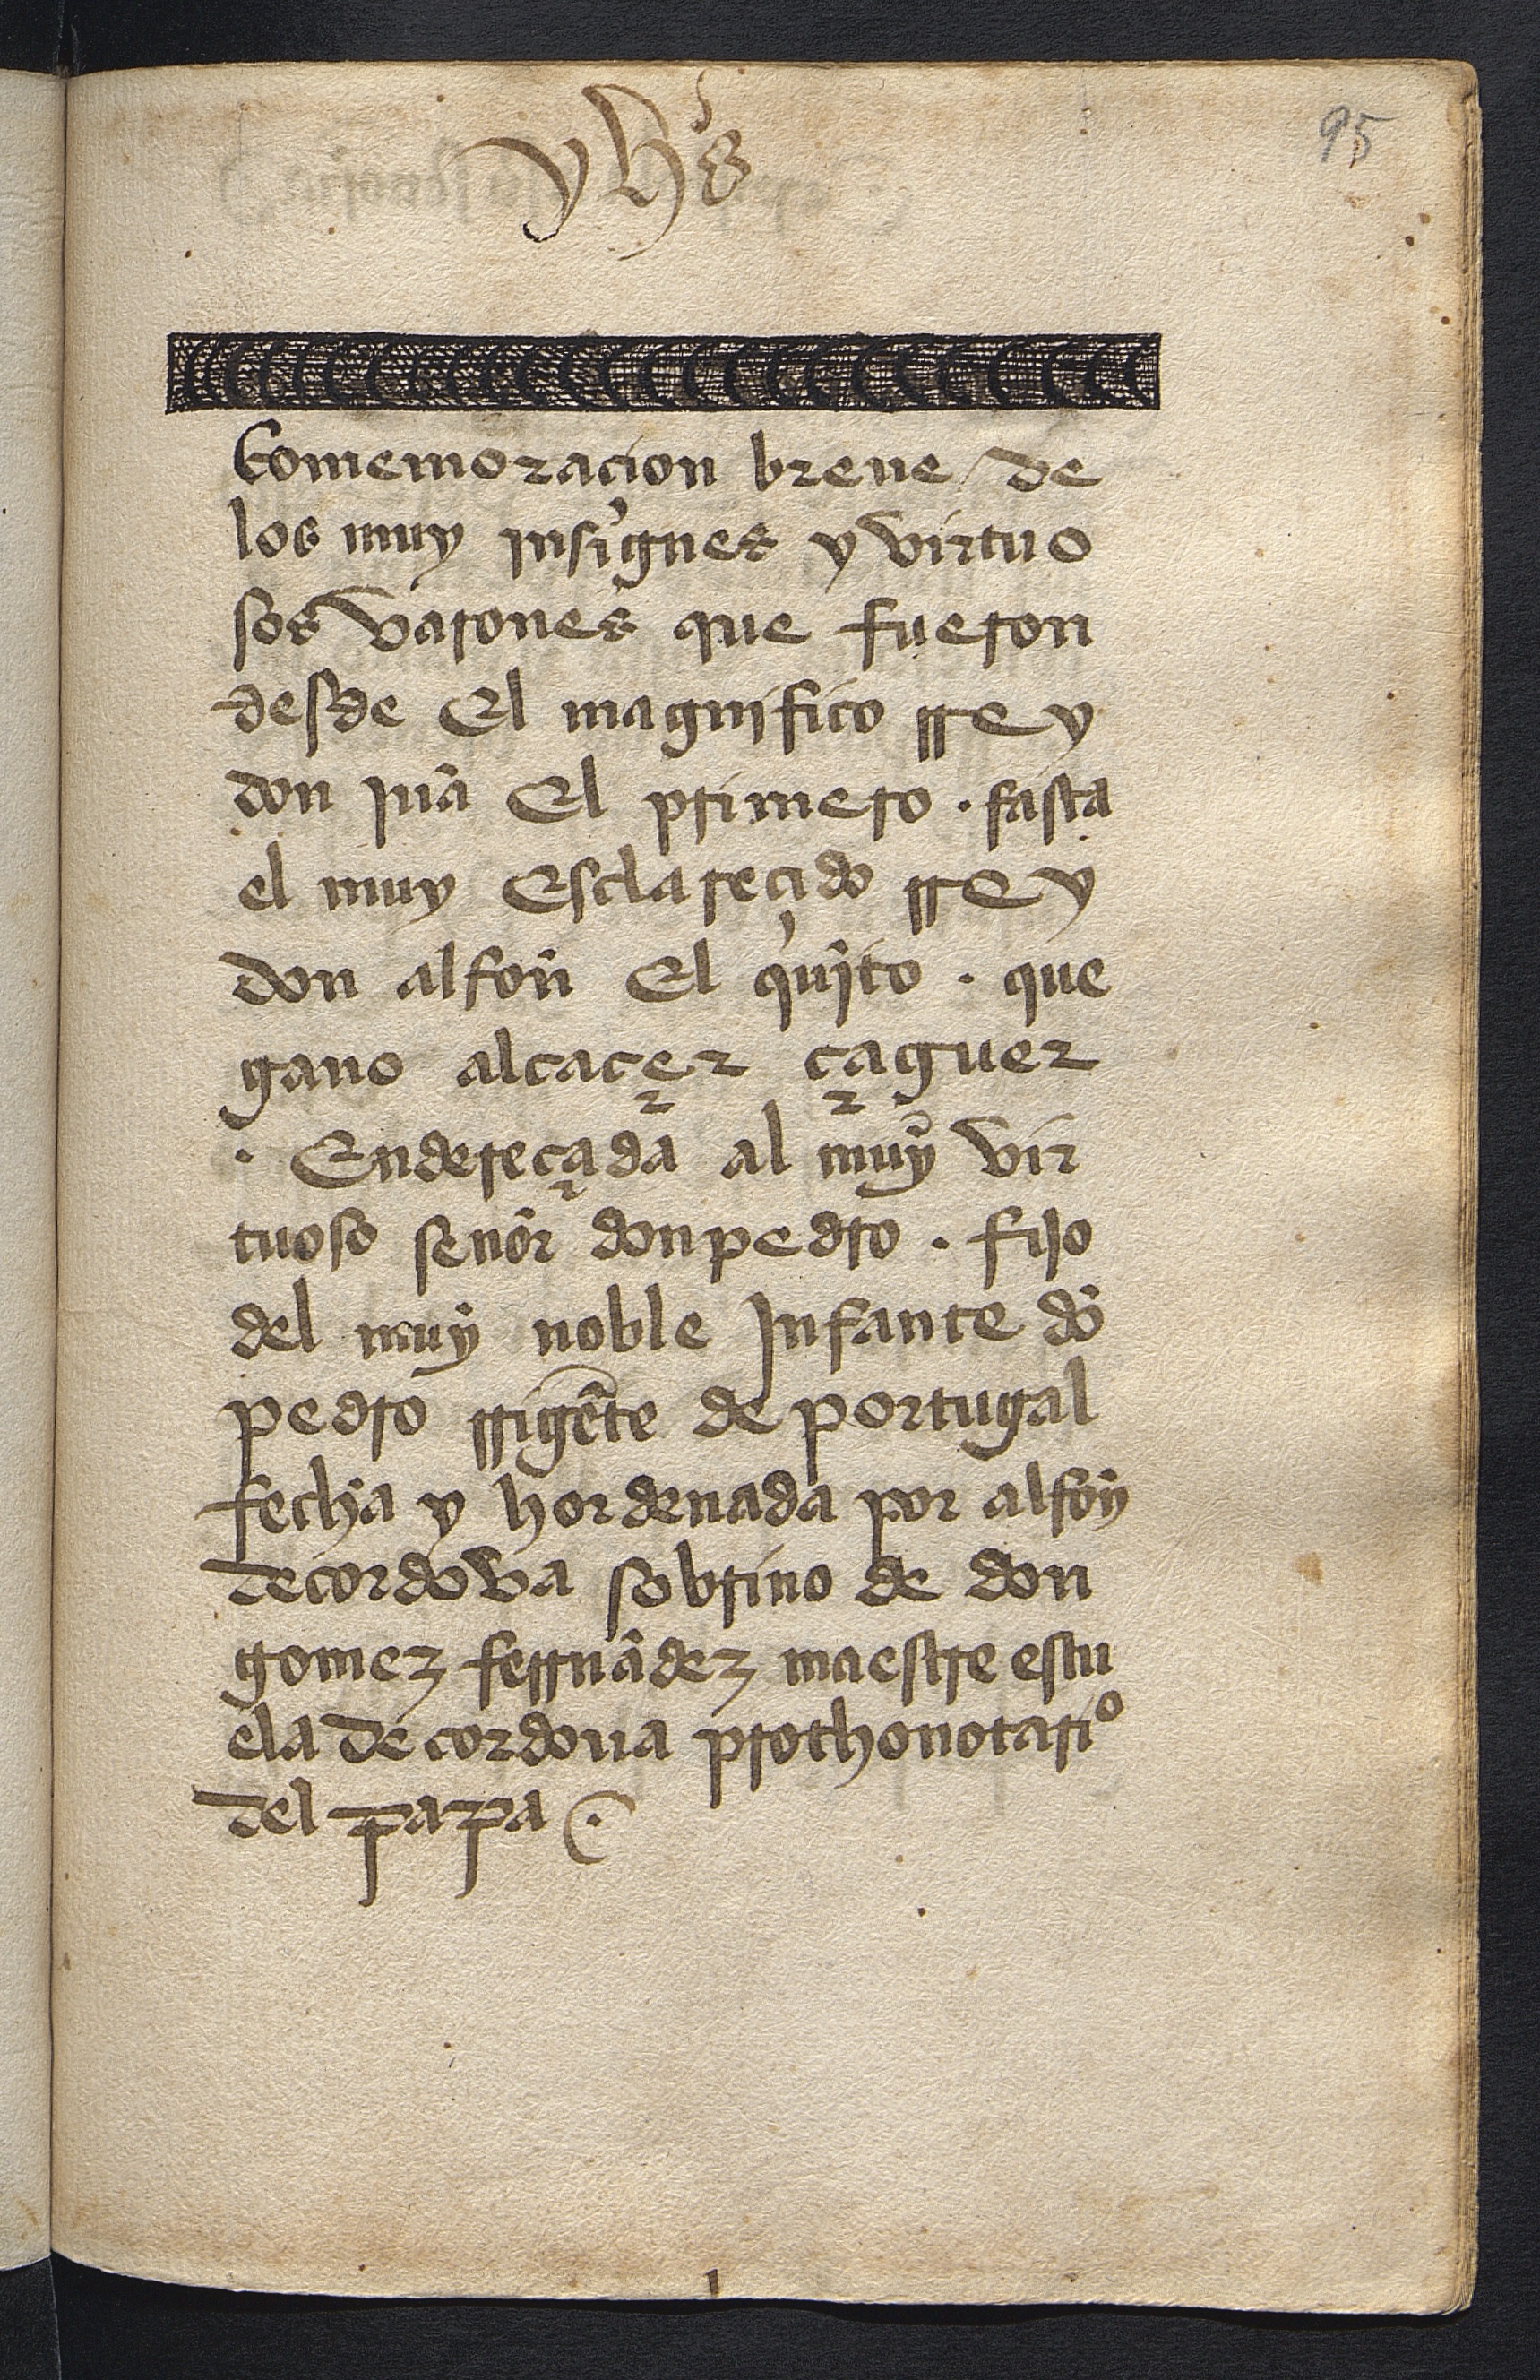 yhs
95
Comemoracion breue de
los muy insignes y virtuo
sos varones que fueron
desde El magnifico rrey
don juã El primero . fasta
el muy Esclareçido rrey
don alfoñ El quĩto . que
gano alcaçer çaguer
. Endereçada al muy vir
tuoso señor don pedro . fijo
del muy noble Infante dõ
pedro rrigẽte de portugal
fecha y hordenada por alfoñ
de cordova sobrino de don
gomez ferrnãdez maestre escu
ela de cordoua prothonotariº
del papa